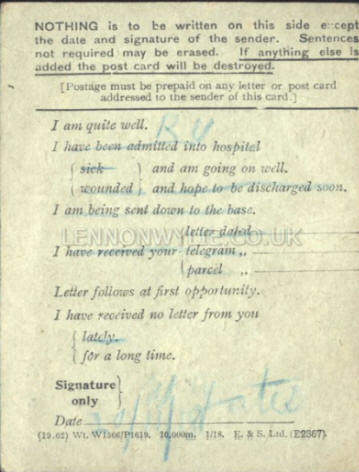 NOTHING is to be written on this side except
the date and signature of the sender. Sentences
not required may be erased. If anything else is
added the post card will be destroyed.
[Postage must be prepaid on any letter or post card
addressed to the sender of this card.]
I am quite well.
I have been admitted into hospital
sick and am going on well.
wounded and hope to be discharged soon.
I am being sent down to the base.
LENNONWYLIE.CO.UK
letter dated
I have received your telegram ,,
parcel ,,
Letter follows at first opportunity.
I have received no letter from you
lately.
for a long time.
Signature
only
Date
(19.62) Wt. W1566/P1619. 10,000m. 1/18. E. & S. Ltd. (E2367).